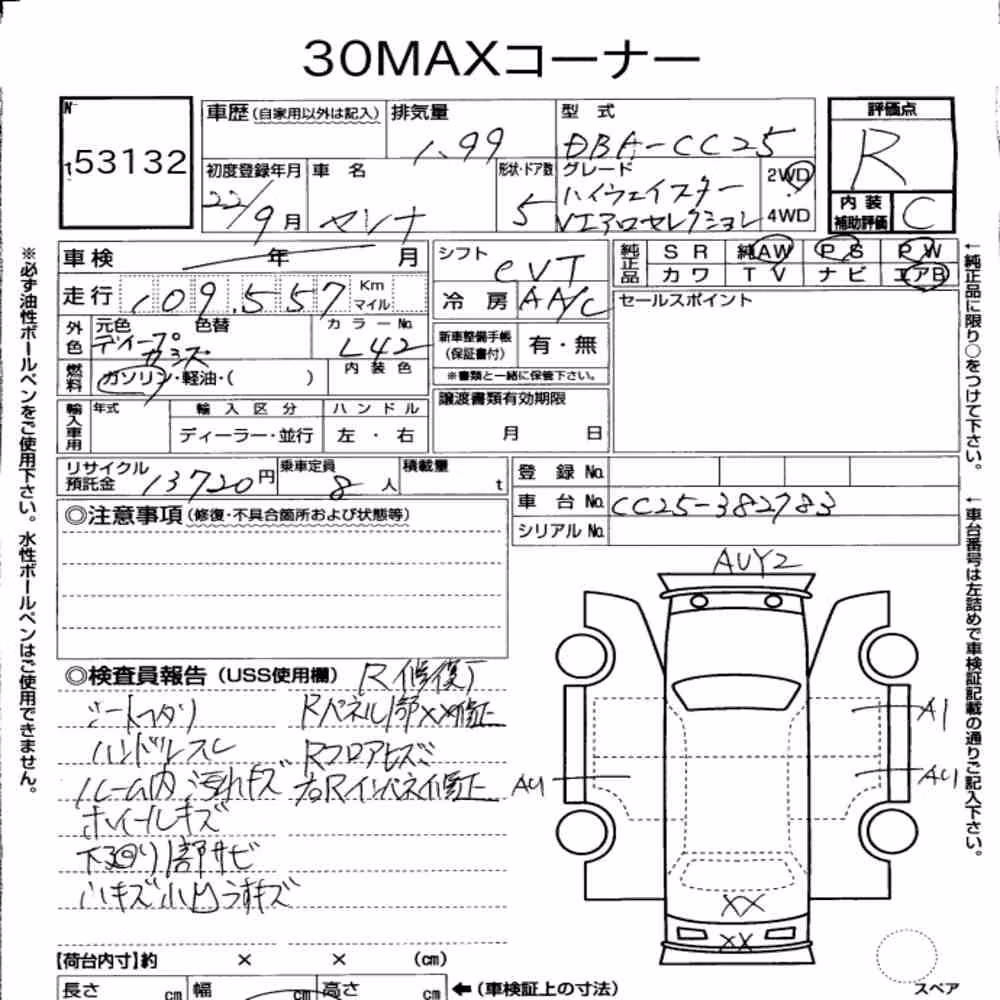 30MAXコーナー
No. 53132
車歴(自家用以外は記入) 排気量 1.99 型式 DBA-CC25
初度登録年月 22/9月 車名 セレナ 形状・ドア数 5 グレード ハイウェイスター Vエアロセレクション 2WD 4WD
評価点 R
内装補助評価 C
車検 年 月
走行 109,557 Km マイル
外色 元色 色替 ディープブカシズ カラーNo. L42
燃料 ガソリン・軽油・( ) 内装色
輸入車用 年式 輸入区分 ハンドル
ディーラー・並行 左・右
シフト CVT
冷房 AAC
新車整備手帳(保証書付) 有・無
※書類と一緒に保管下さい。
譲渡書類有効期限
月 日
純正品 SR 純AW PS PW
カワ TV ナビ エアB
セールスポイント
リサイクル預託金 13720円 乗車定員 8人 積載量 t
登録No.
車台No. CC25-382783
シリアルNo.
◎注意事項(修復・不具合箇所および状態等)
◎検査員報告(USS使用欄) R修復
シートコゲ穴 Rパネル1部XX修正
ハンドルスレ Rフロアヒズミ
ルーム内汚れキズ 右Rインパネ修正
ホイールキズ
下廻り1部サビ
小キズ小凹うすキズ
AUY2
A1
AU
AU1
XX
XX
スペア
【荷台内寸】約 × × (cm)
長さ cm 幅 cm 高さ cm ←(車検証上の寸法)
※必ず油性ボールペンをご使用下さい。水性ボールペンはご使用できません。
←純正品に限り○をつけて下さい。
←車台番号は左詰めで車検証記載の通りご記入下さい。